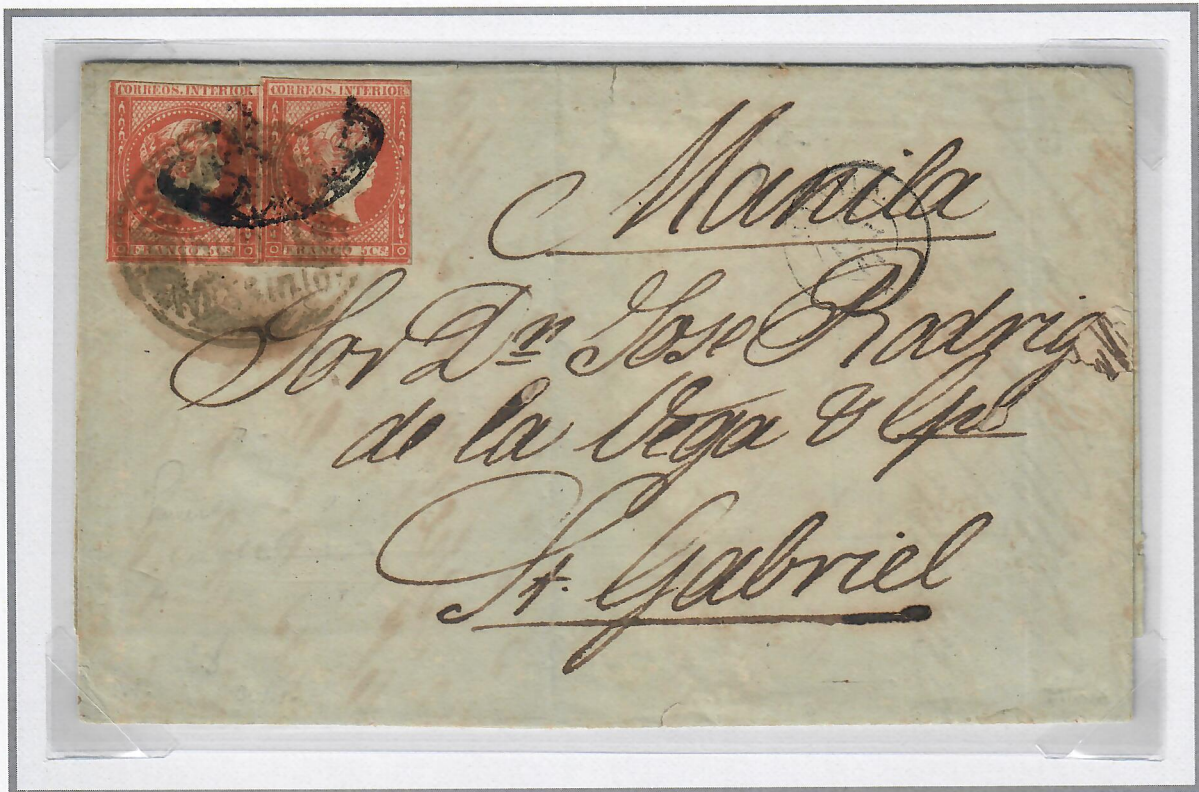 CORREOS. INTERIOR CORREOS. INTERIOR
FRANCO 5 Cs. FRANCO 5 Cs.
Manila
Sor Dn Jose Rodrig
de la Vega & Cpa
St. Gabriel